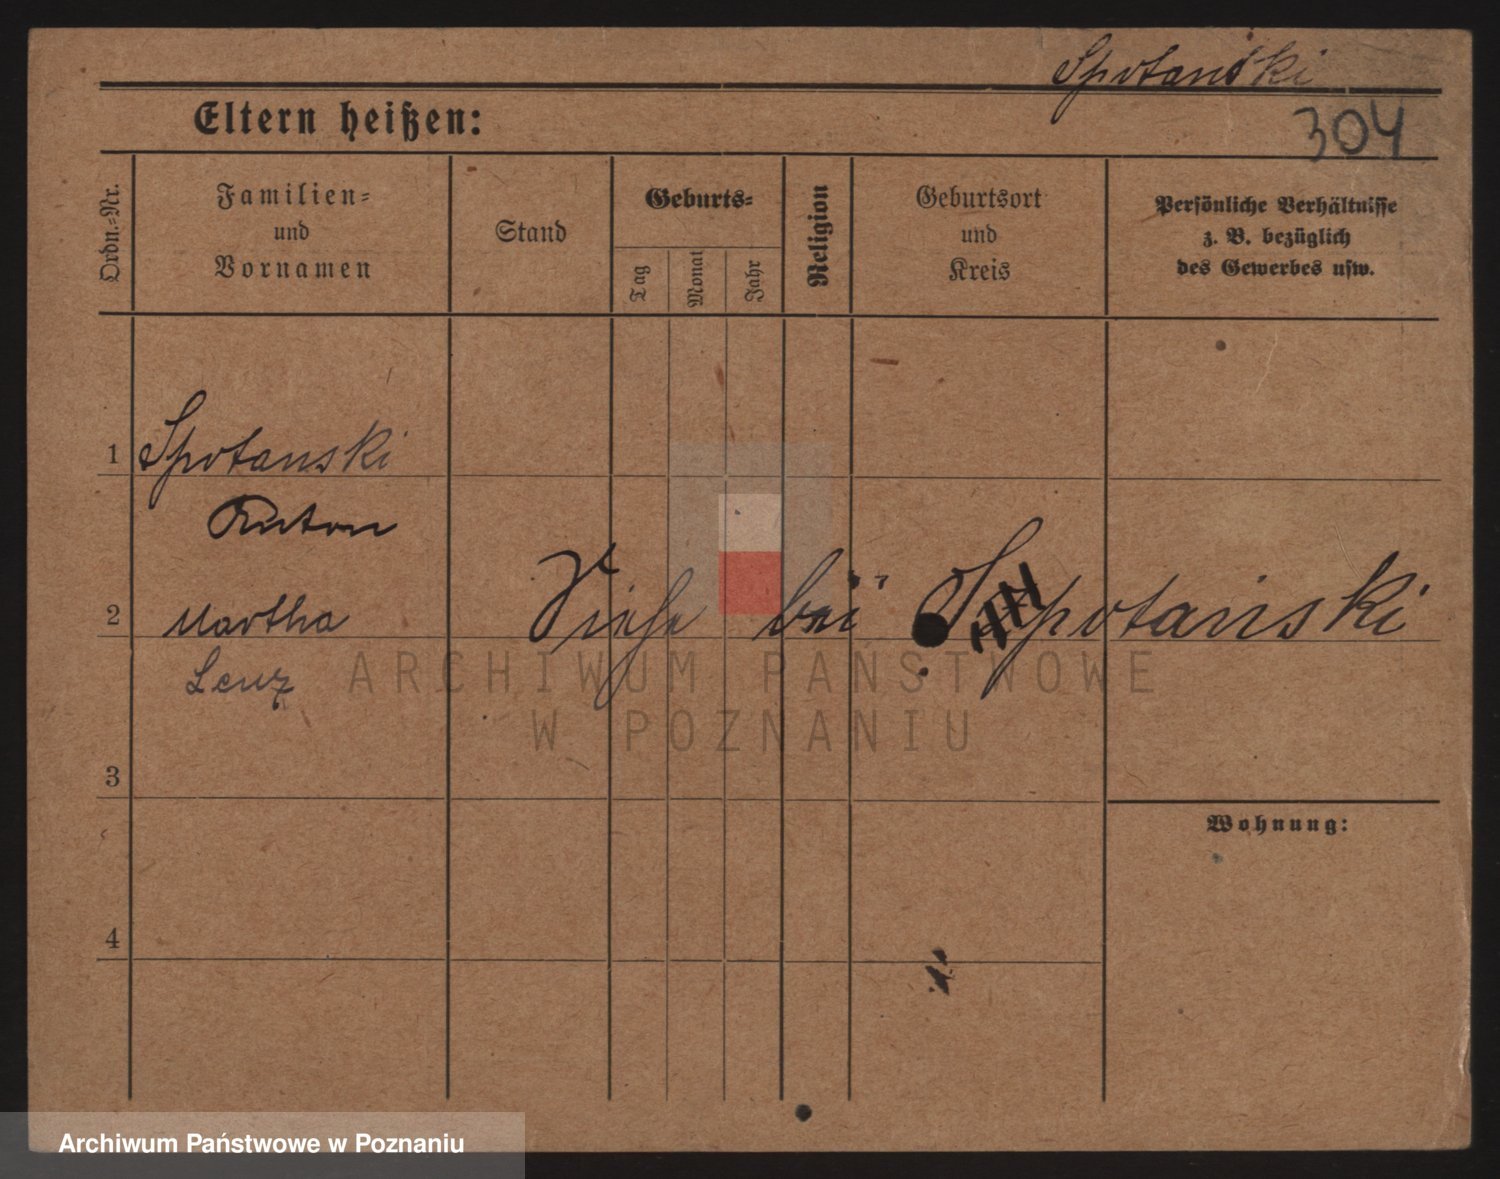 Spotanski
Eltern heißen:
304
Ordn.=Nr.
Familien=
und
Vornamen
Stand
Geburts=
Tag
Monat
Jahr
Religion
Geburtsort
und
Kreis
Persönliche Verhältnisse
z. B. bezüglich
des Gewerbes usw.
1 Spotanski
Anton
2 Martha
Siehe bei Spotanski
Lenz
ARCHIWUM PAŃSTWOWE
W POZNANIU
3
Wohnung:
4
Archiwum Państwowe w Poznaniu